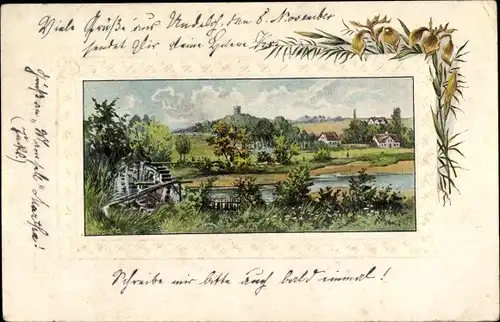 Viele Grüße aus Undeloh, den 8. November
sendet Dir deine
Gruß an "Mamsell" Martha!
Schreibe mir bitte auch bald einmal!